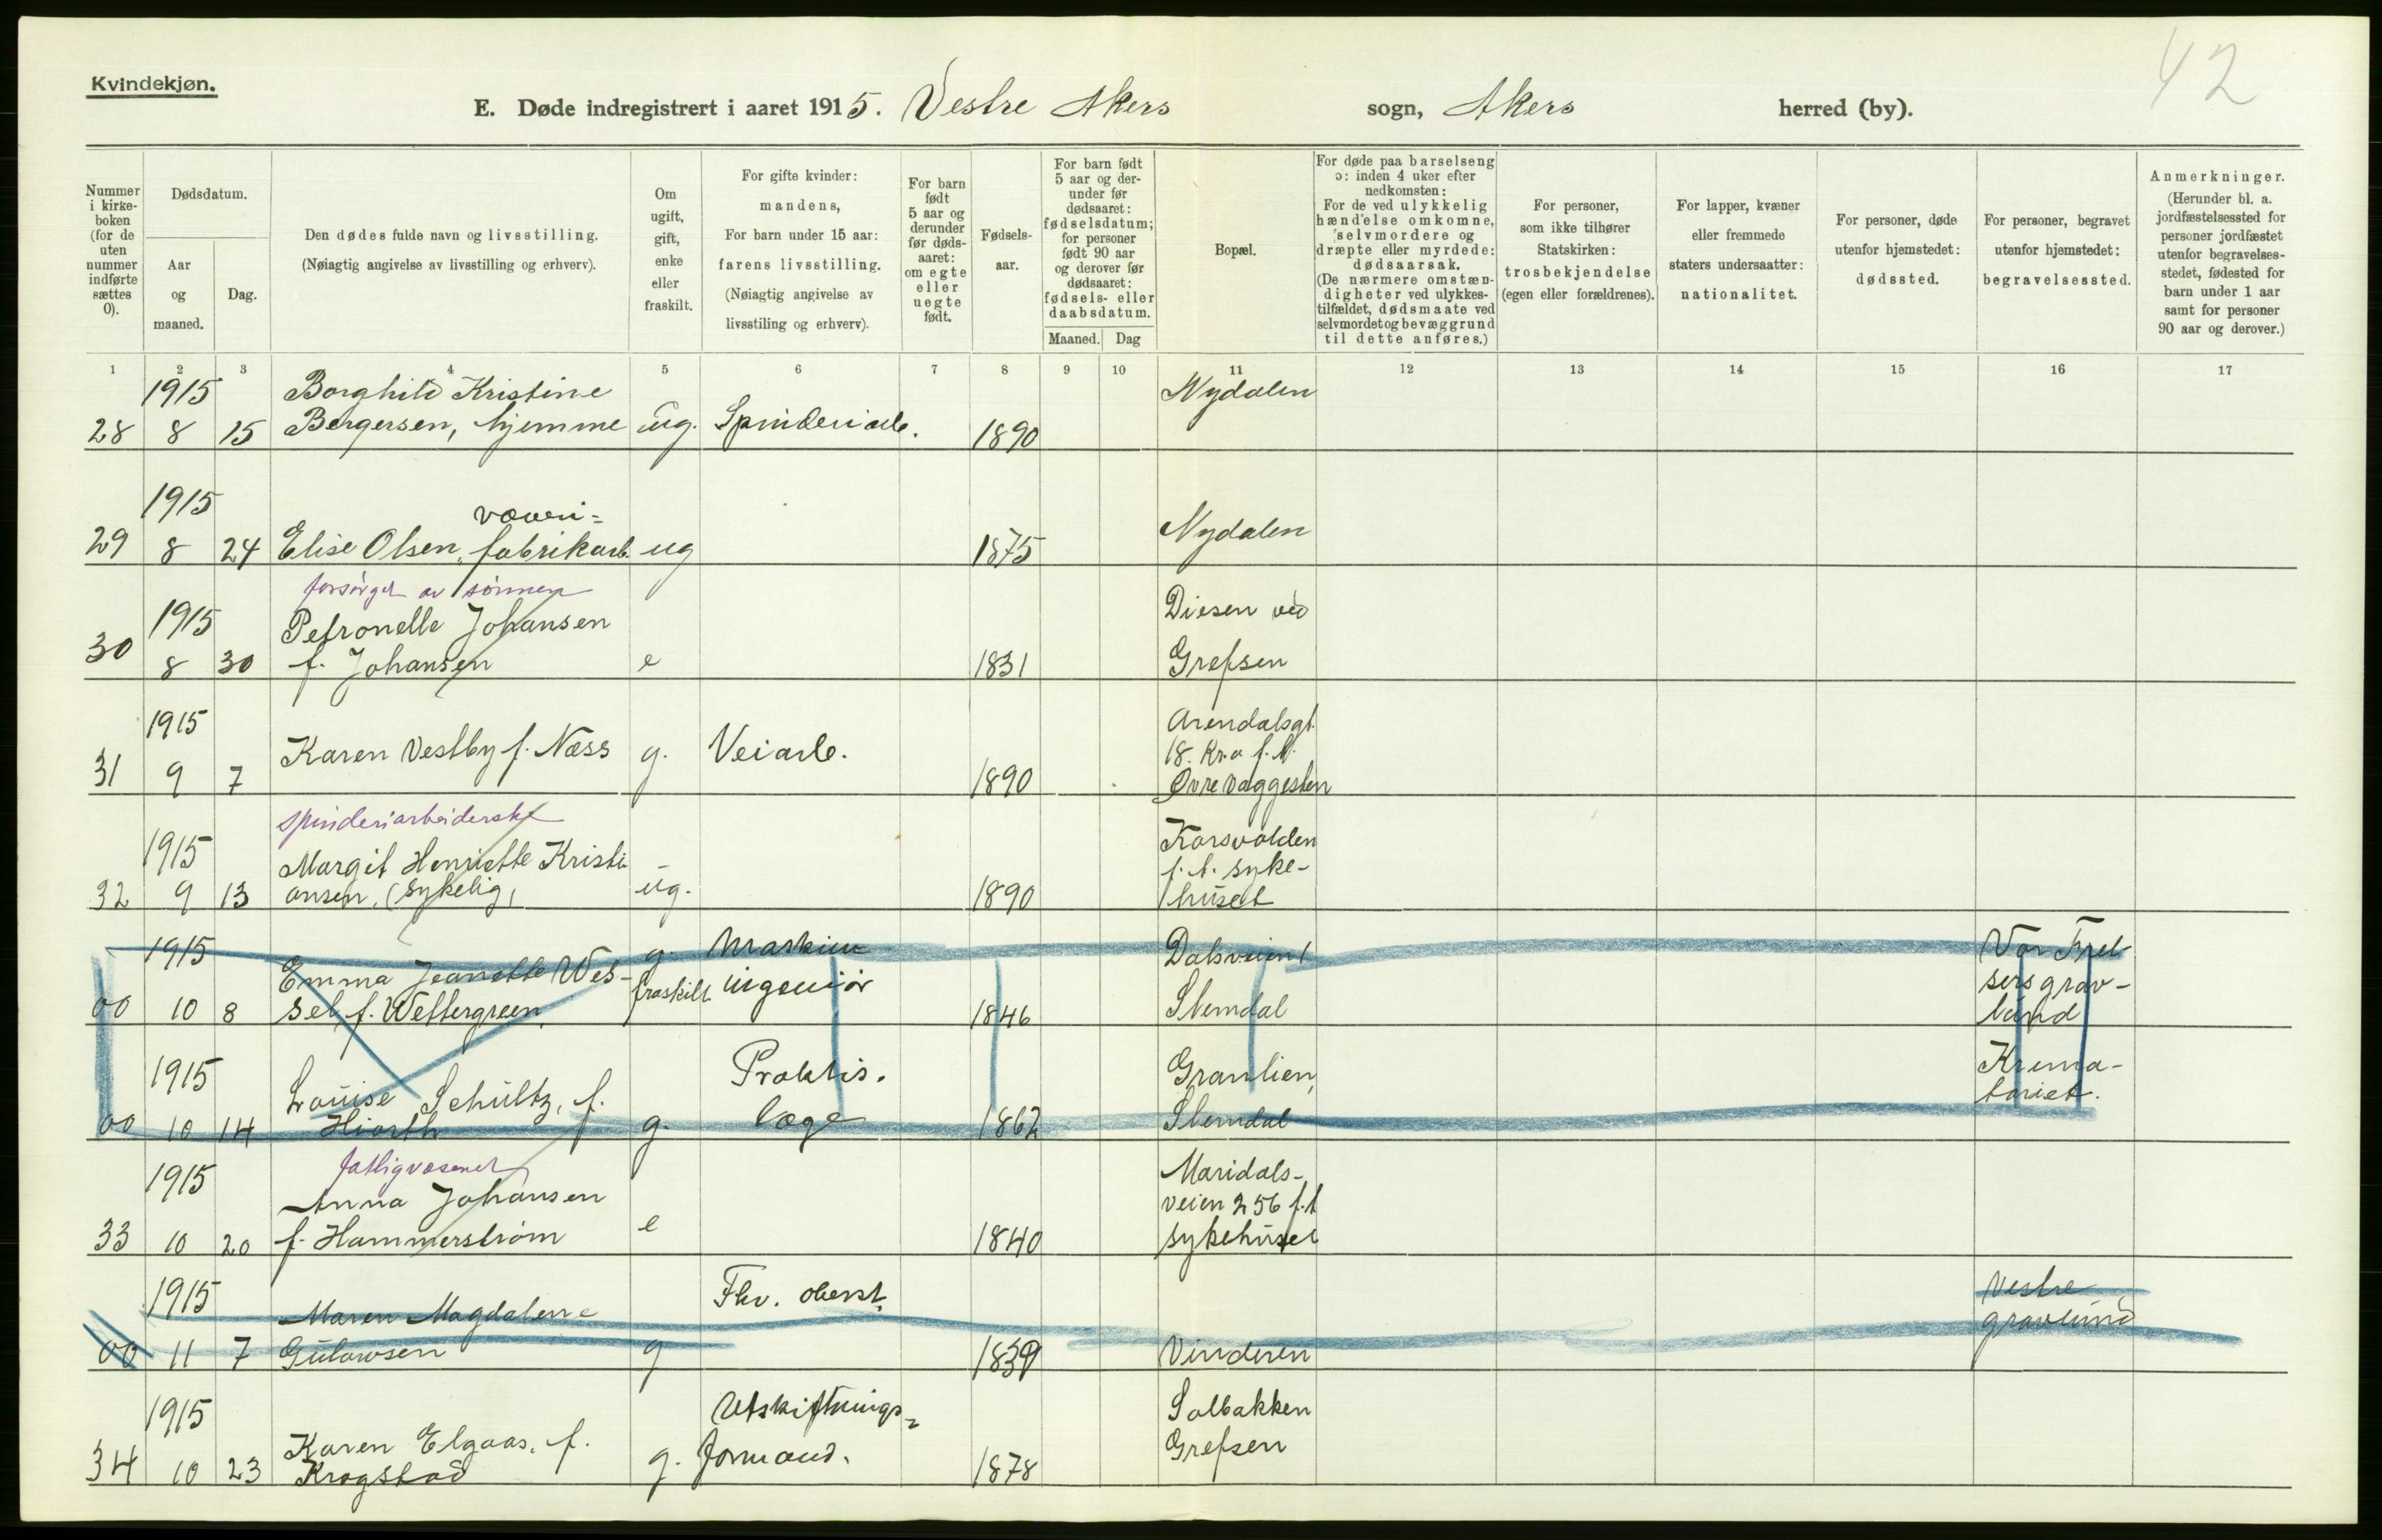 Kvindekjøn.
42
E. Døde indregistrert i aaret 1915. Vestre Akers sogn, Akers herred (by).
Nummer i kirkeboken (for de uten nummer indførte sættes 0).
Dødsdatum.
Aar og maaned.
Dag.
Den dødes fulde navn og livsstilling.
(Nøiagtig angivelse av livsstilling og erhverv).
Om ugift, gift, enke eller fraskilt.
For gifte kvinder: mandens,
For barn under 15 aar: farens livsstilling.
(Nøiagtig angivelse av livsstiling og erhverv).
For barn født 5 aar og derunder før dødsaaret: om egte eller uegte født.
Fødselsaar.
For barn født 5 aar og derunder før dødsaaret: fødselsdatum; for personer født 90 aar og derover før dødsaaret: fødsels- eller daabsdatum.
Maaned. Dag
Bopæl.
For døde paa barselseng ɔ: inden 4 uker efter nedkomsten:
For de ved ulykkelig hændelse omkomne, selvmordere og dræpte eller myrdede: dødsaarsak.
(De nærmere omstændigheter ved ulykkestilfældet, dødsmaate ved selvmordet og bevæggrund til dette anføres.)
For personer, som ikke tilhører Statskirken: trosbekjendelse (egen eller forældrenes).
For lapper, kvæner eller fremmede staters undersaatter: nationalitet.
For personer, døde utenfor hjemstedet: dødssted.
For personer, begravet utenfor hjemstedet: begravelsessted.
Anmerkninger.
(Herunder bl. a. jordfæstelsessted for personer jordfæstet utenfor begravelsesstedet, fødested for barn under 1 aar samt for personer 90 aar og derover.)
1 2 3 4 5 6 7 8 9 10 11 12 13 14 15 16 17
1915 Borghild Kristine Nydalen
28 8 15 Bergersen, hjemme ug. Spinderiarb. 1890
1915 væveri=
29 8 24 Elise Olsen, fabrikarb. ug 1875 Nydalen
forsørget av sønnen
1915 Petronelle Johansen Diesen ved
30 8 30 f. Johansen e 1831 Grefsen
1915 Arendalsgt.
Karen Vestby f. Næss g. Veiarb. 18. Kr.a f. t.
31 9 7 1890 Øvre Vaggesten
spinderiarbeiderske
1915 Margit Henriette Kristi Korsvolden
f. t. syke-
32 9 13 ansen, (sykelig) ug. 1890 huset
1915 Emma Jeanette Wes- g. Maskin Dalsveien 1 Vor Frel
fraskilt ingeniør sers grav-
00 10 8 sel, f. Wettergreen, 1846 Slemdal lund
1915 Louise Schultz, f. Praktis. Granlien, Krema-
toriet.
00 10 14 Hiorth g. læge 1862 Slemdal
fattigvæsenet
1915 Anna Johansen Maridals-
veien 256 f.t
33 10 20 f. Hammerstrøm e 1840 sykehuset
1915 Maren Magdalene Fhv. oberst. Vestre
gravlund
00 11 7 Gulowsen g 1839 Vinderen
1915 Karen Elgaas, f. Utskiftnings= Solbakken
Grefsen
34 10 23 Krogstad g. formand. 1878